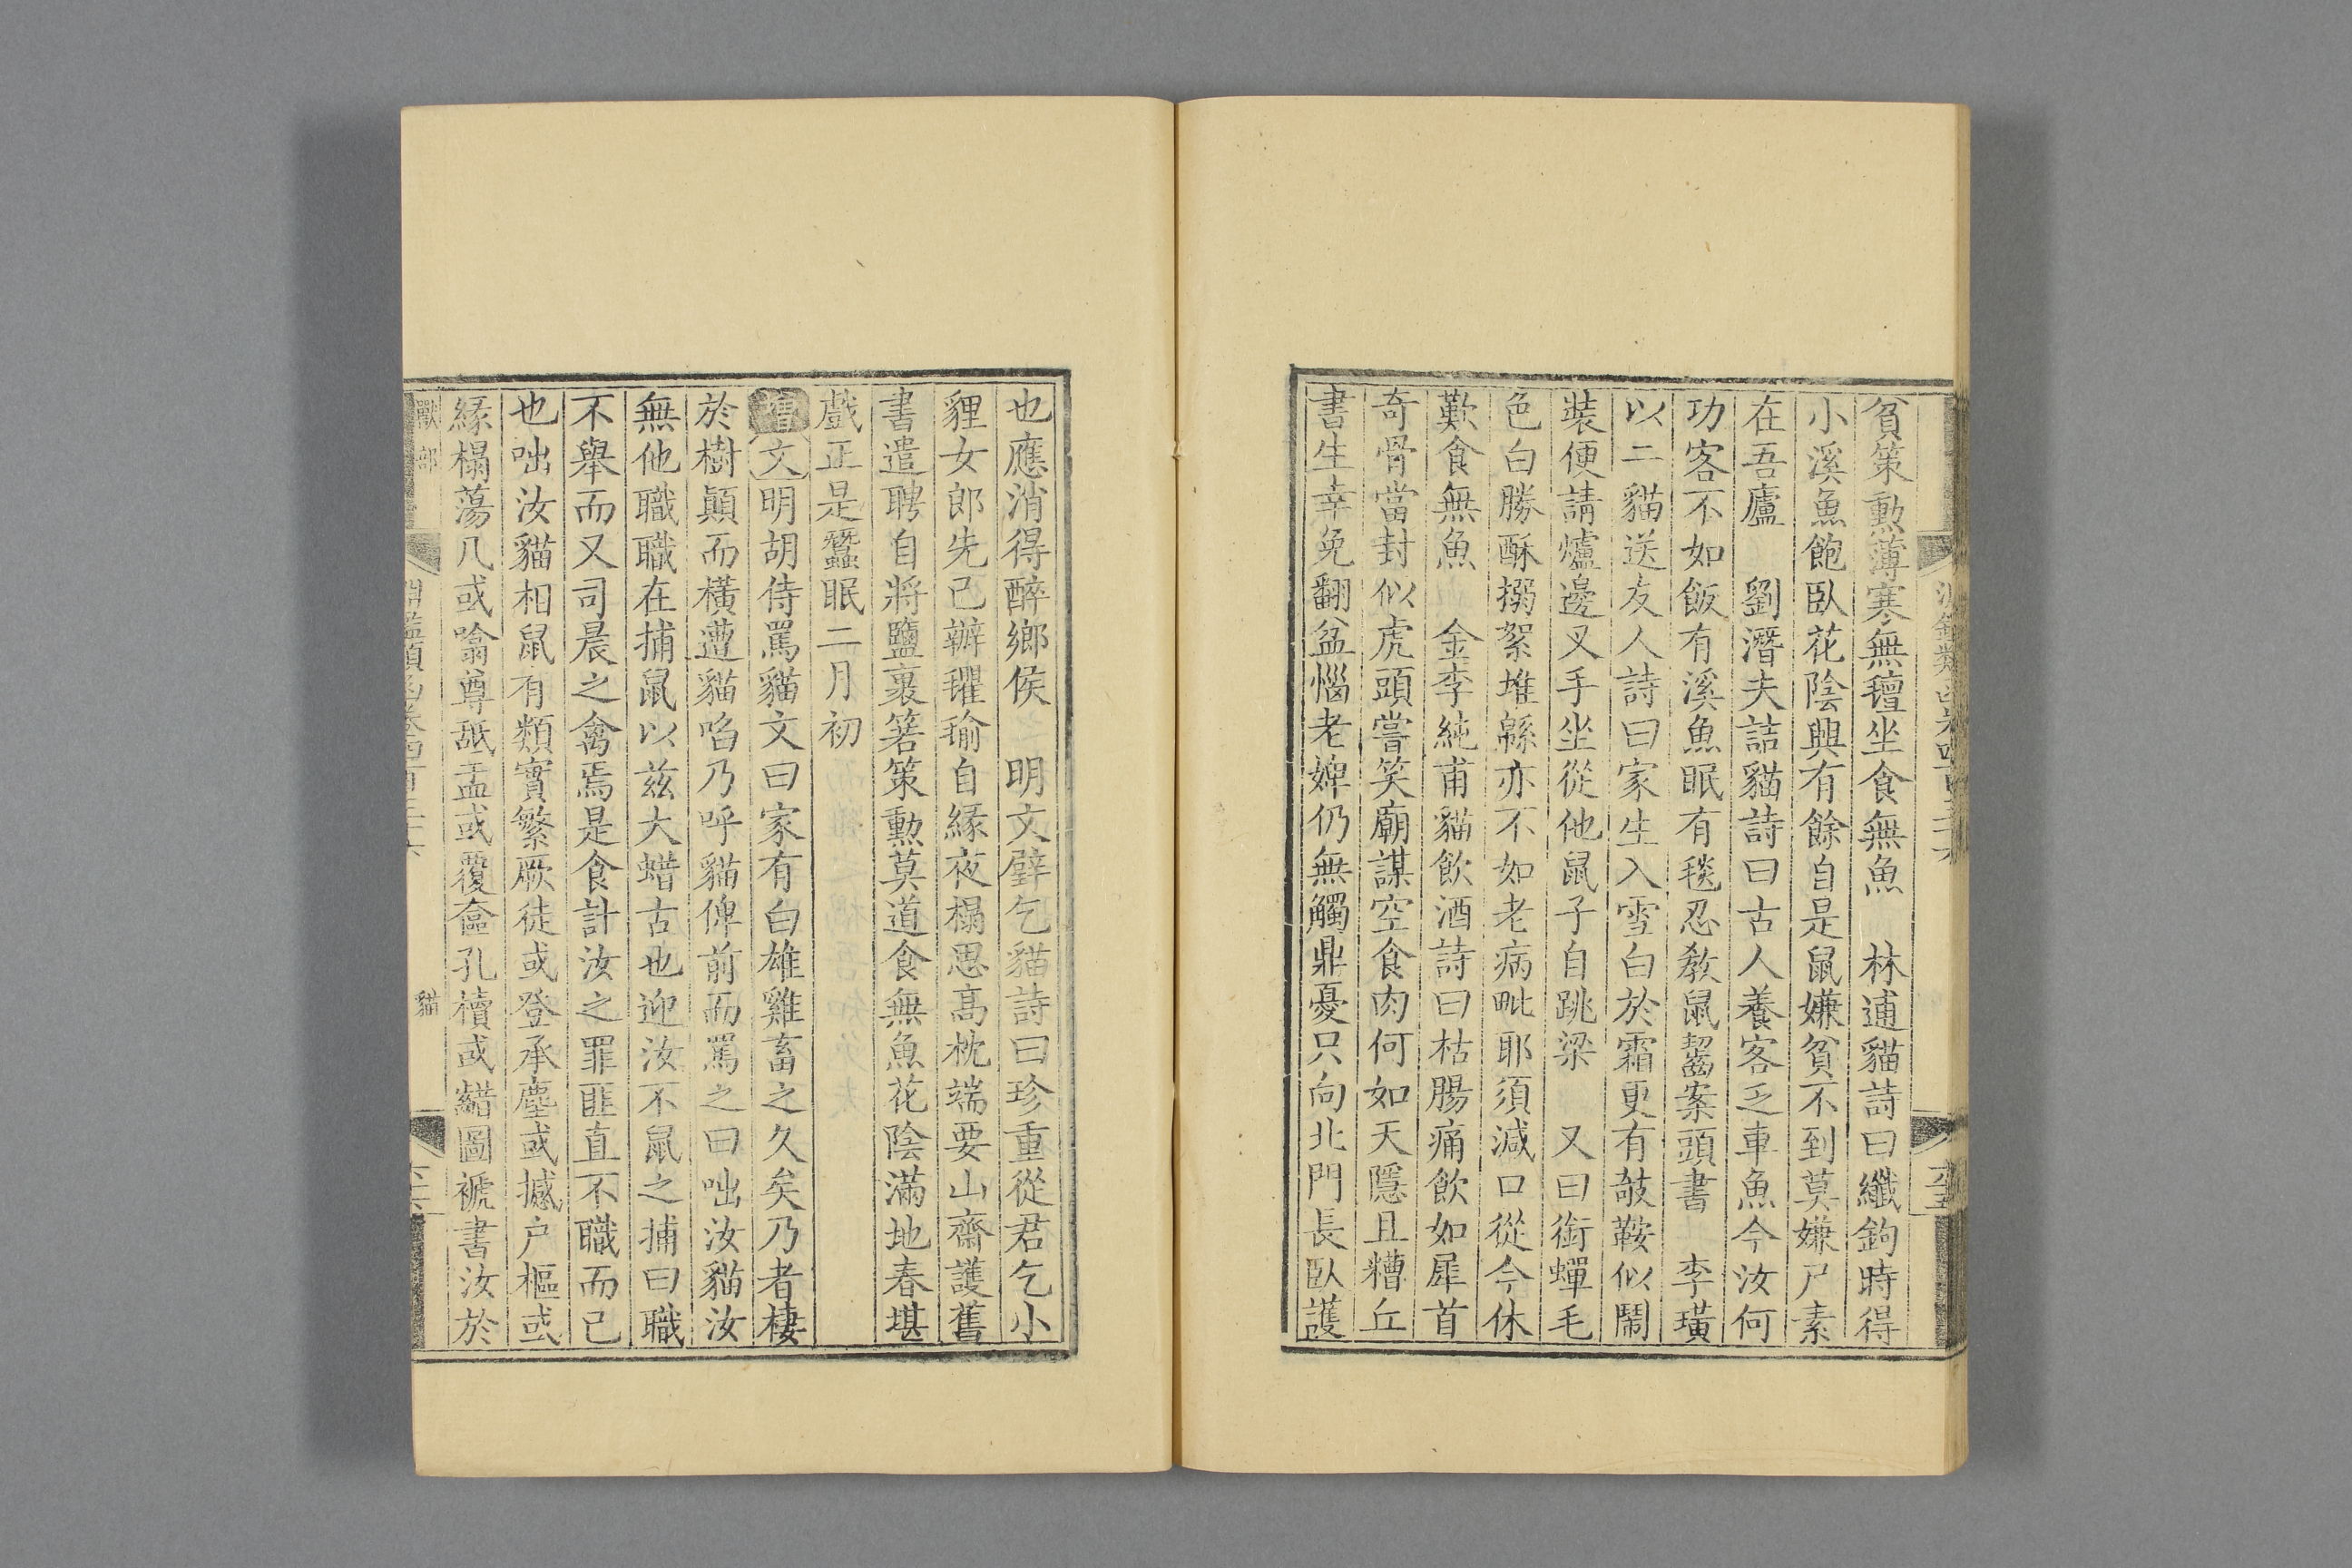 貧策勲薄寒無氊坐食無魚　林逋貓詩曰纖鉤時得
小溪魚飽臥花陰興有餘自是鼠嫌貧不到莫嫌尸素
在吾廬　劉潛夫詰貓詩曰古人養客乏車魚今汝何
功客不如飯有溪魚眠有毯忍敎鼠齧案頭書　李璜
以二貓送友人詩曰家生入雪白於霜更有敧鞍似鬧
裝便請爐邊叉手坐從他鼠子自跳梁　又曰銜蟬毛
色白勝酥搦絮堆緜亦不如老病毗耶須減口從今休
歎食無魚　金李純甫貓飲酒詩曰枯腸痛飲如犀首
奇骨當封似虎頭嘗笑廟謀空食肉何如天隱且糟丘
書生幸免翻盆惱老婢仍無觸鼎憂只向北門長臥護
也應消得醉鄉侯　明文璧乞貓詩曰珍重從君乞小
貍女郎先已辦氍毹自緣夜榻思高枕端要山齋護舊
書遣聘自將鹽裹箬策勲莫道食無魚花陰滿地春堪
戲正是蠶眠二月初
增文明胡侍罵貓文曰家有白雄雞畜之久矣乃者棲
於樹顛而橫遭貓啗乃呼貓俾前而罵之曰咄汝貓汝
無他職職在捕鼠以兹大蜡古也迎汝不鼠之捕曰職
不舉而又司晨之禽焉是食計汝之罪匪直不職而已
也咄汝貓相鼠有類實繁厥徒或登承塵或撼户樞或
緣榻蕩几或噏尊舐盂或覆奩孔櫝或齰圖褫書汝於
獸部
淵鑑類函卷四百三十六
貓